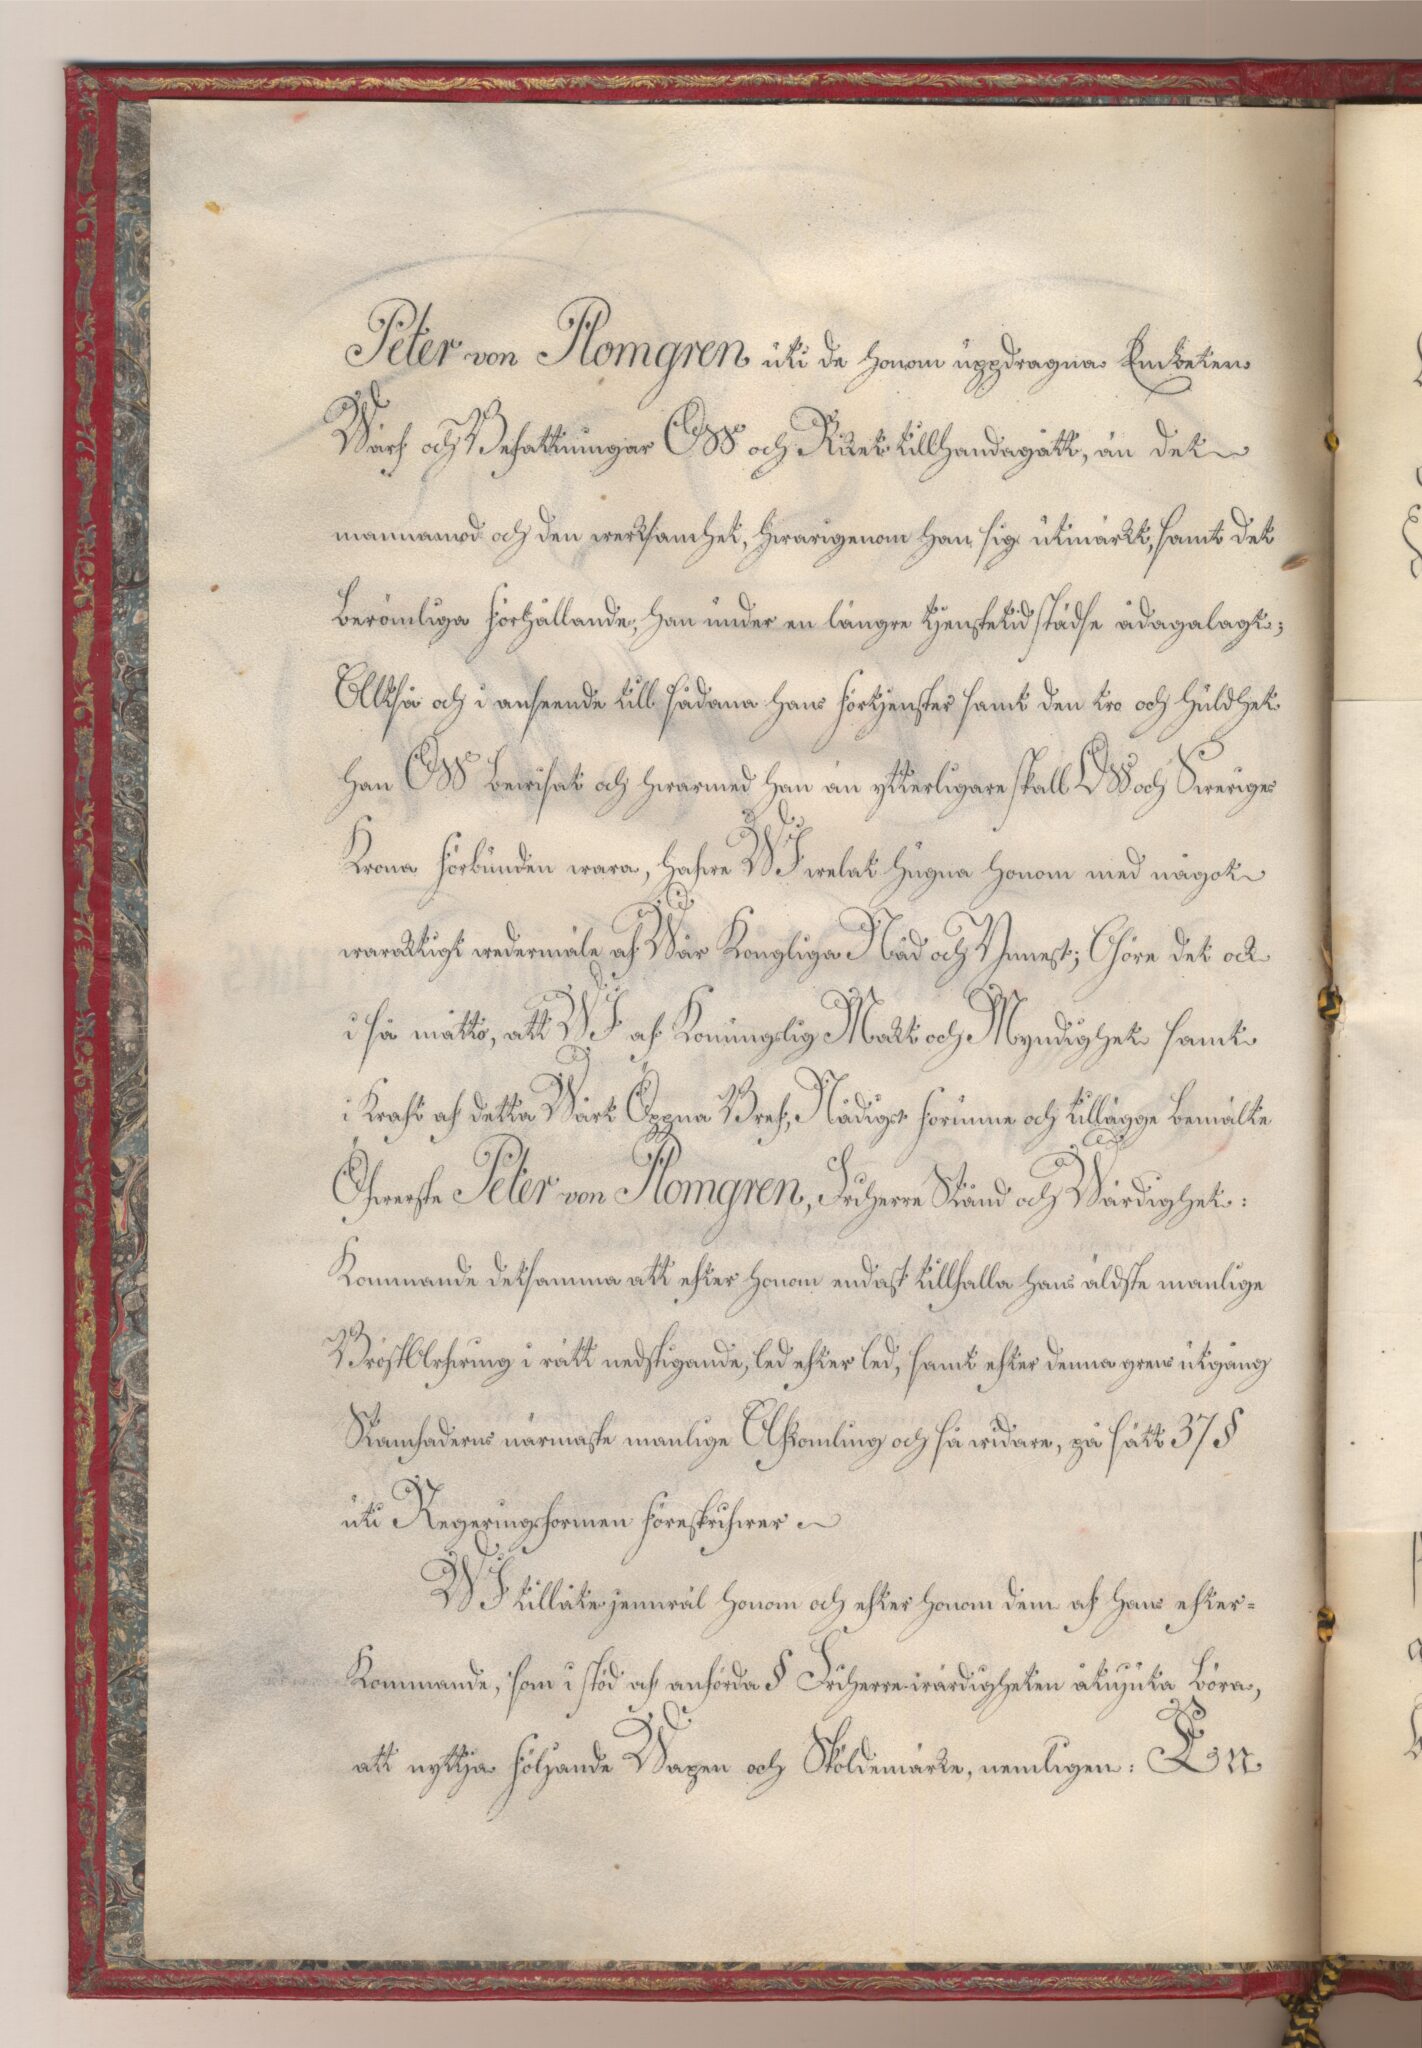 Peter von Plomgren uti de honom uppdragna Embeten
Värf och Befattningar Oss och Riket tillhandagått, än det
mannamod och den werksamhet, hwarigenom han sig utmärkt, samt det
berömliga förhållande, han under en längre tjenstetid städse ådagalagt;
Altså och i anseende till sådana hans förtjenster samt den tro och huldhet
han Oss bewisat och hwarmed han än ytterligare skall Oss och Sweriges
Krona förbunden wara, hafwe Wi welat hugna honom med något
waracktigt wedermäle af Wår Kongliga Nåd och Ynnest; Göre det ock
i så måtto, att Wi af Konungslig Makt och Myndighet samt
i kraft af detta Wårt Öppna Bref, Nådigst förunne och tillägge bemälte
Öfwerste Peter von Plomgren, Friherre Stånd och Wärdighet:
Kommande detsamma att efter honom endast tillfalla hans äldste manlige
BröstArfwing i rätt nedstigande, led efter led, samt efter denna grens utgång
Stamfaderns närmaste manlige Afkomling och så widare, på sätt 37 §
uti Regeringsformen föreskrifwer
Wi tillåte jemwäl honom och efter honom dem af hans efter=
kommande, som i stöd af anförda § Friherre-wärdigheten åtnjuta böra,
att nyttja följande Wapen och Sköldemärke, nemligen: En